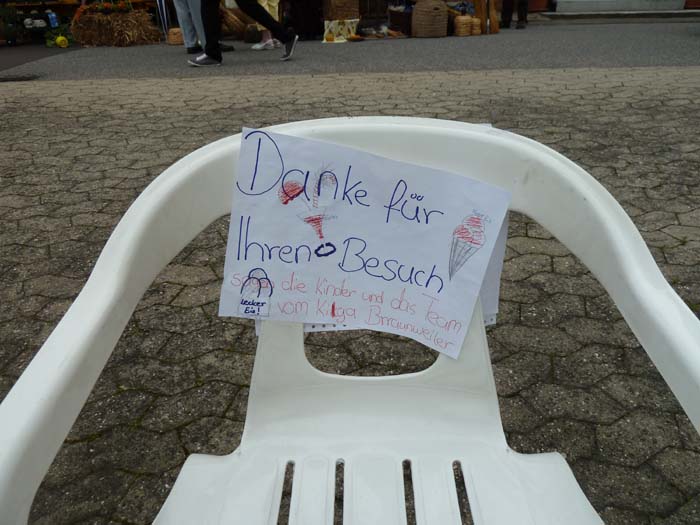 Danke für
Ihren Besuch
sagen die Kinder und das Team
vom Kiga Brraunweiler
Lecker
Eis!